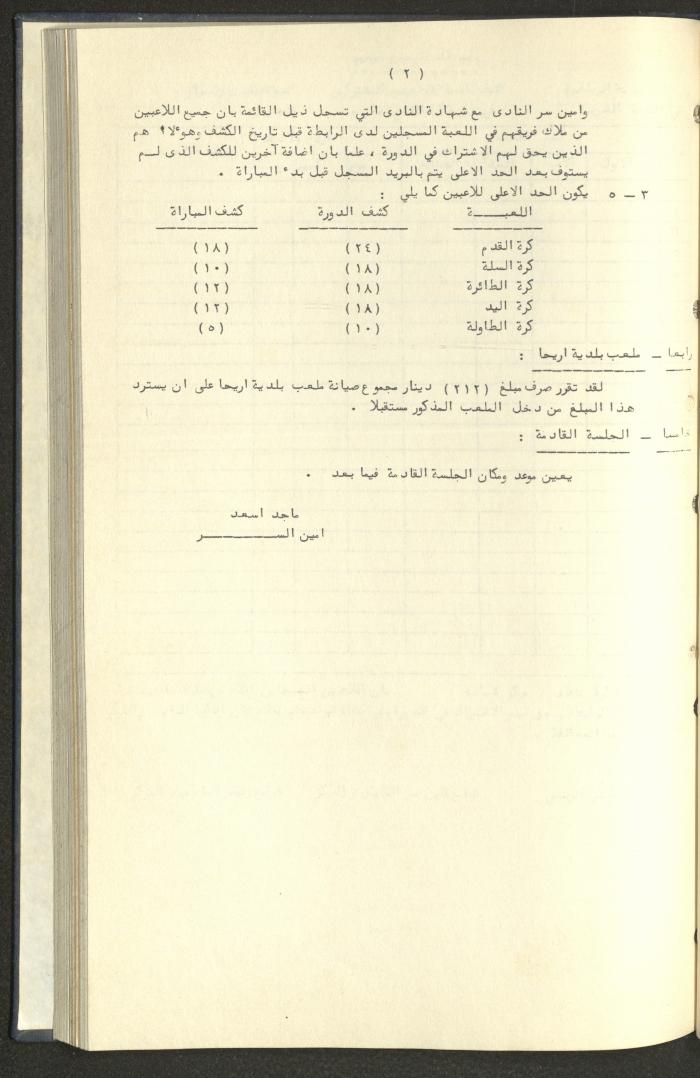 ( ٢ )
وامين سر النادى مع شهادة النادى التي تسجل ذيل القائمة بان جميع اللاعبين
من ملاك فريقهم في اللعبة المسجلين لدى الرابطة قبل تاريخ الكشف وهو٠لا٠ هم
الذين يحق لهم الاشتراك في الدورة ، علما بان اضافة آخرين للكشف الذى لــم
يستوف بعد الحد الاعلى يتم بالبريد المسجل قبل بد٠ المباراة .
٣ – ٥ يكون الحد الاعلى للاعبين كما يلي :
اللعبــــة كشف الدورة كشف المباراة
كرة القدم (٢٤) (١٨)
كرة السلة (١٨) (١٠)
كرة الطائرة (١٨) (١٢)
كرة اليد (١٨) (١٢)
كرة الطاولة (١٠) (٥)
رابعا – ملعب بلدية اريحا :
لقد تقرر صرف مبلغ (٢١٢) دينار مجموع صيانة ملعب بلدية اريحا على ان يسترد
هذا المبلغ من دخل الملعب المذكور مستقبلا .
خامسا – الجلسة القادمة :
يعين موعد ومكان الجلسة القادمة فيما بعد .
ماجد اسعد
امين الســــــــر